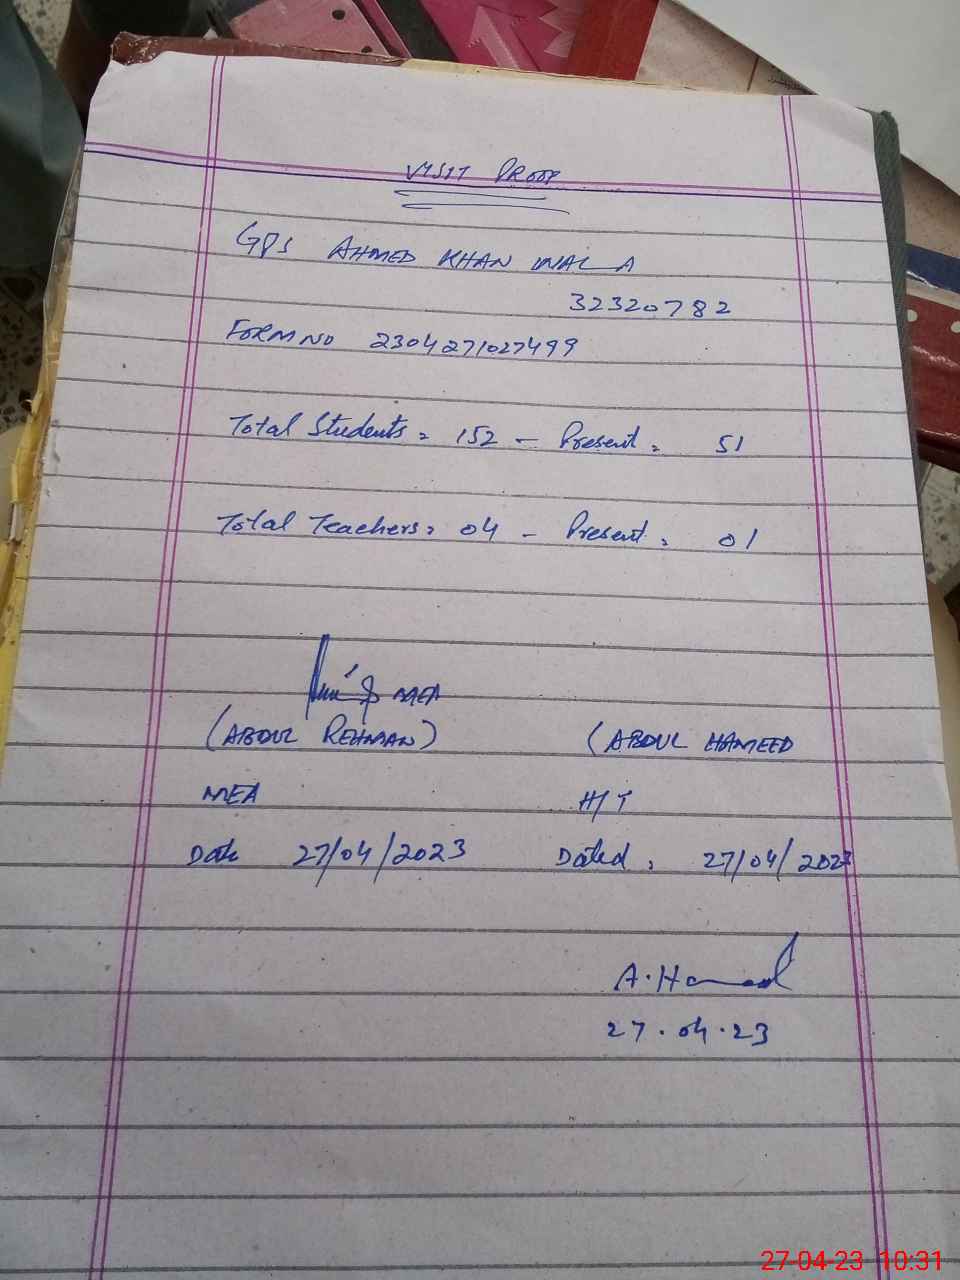 VISIT PROOF
GPS AHMED KHAN WALA
32320782
FORM NO 2304271027499
Total Students = 152 - Present = 51
Total Teachers = 04 - Present = 01
MEA
(ABDUL REHMAN) (ABDUL HAMEED
MEA H/T
Date 27/04/2023 Dated = 27/04/2023
A. Hameed
27.04.23
27-04-23 10:31